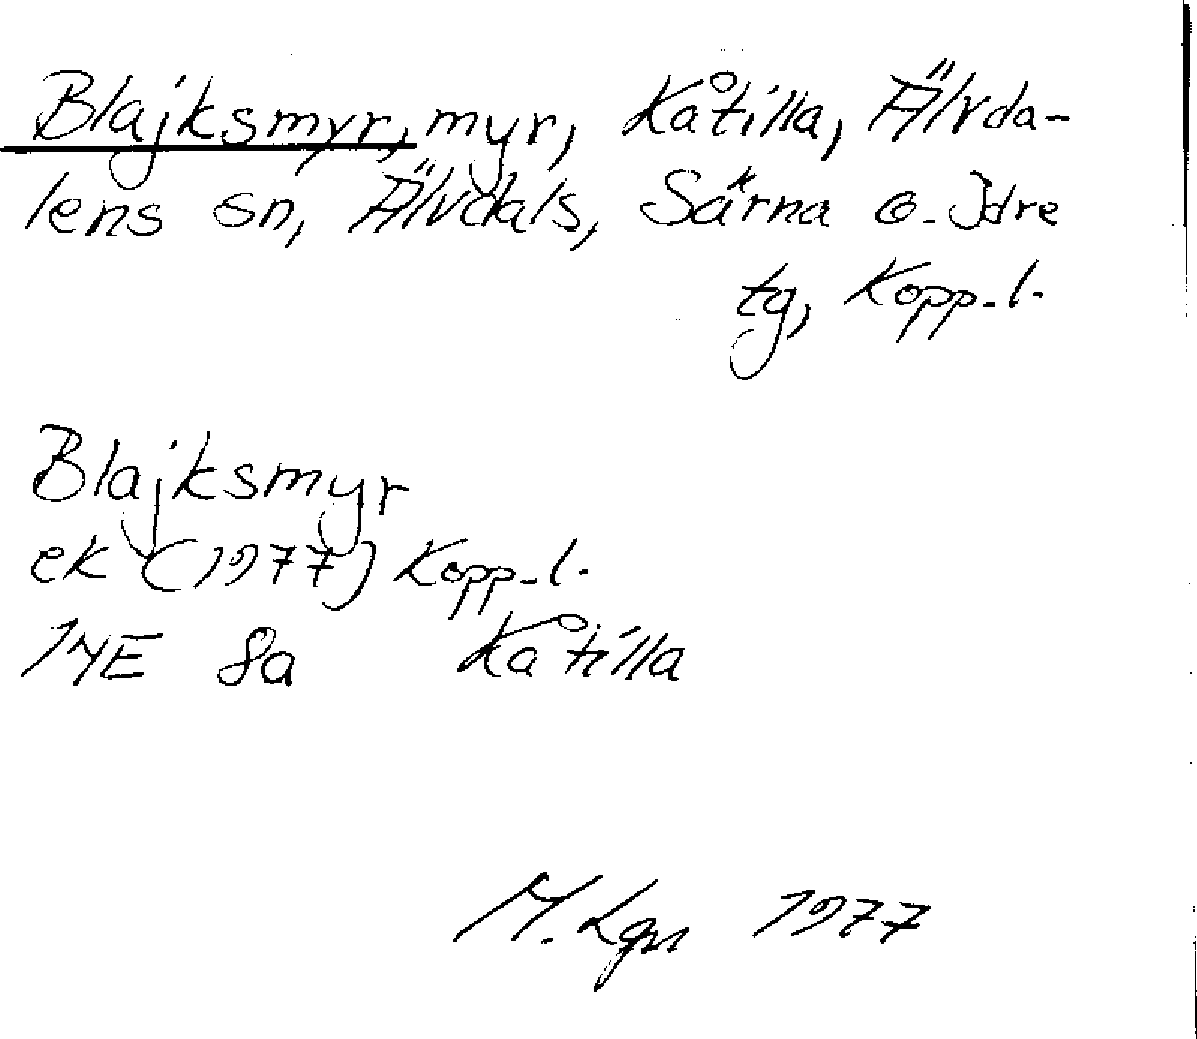 Blajksmyr, myr, Kåtilla, Älvda-
lens sn, Älvdals, Särna o. Idre
tg, Kopp.l.
Blajksmyr
ek (1977) Kopp.l.
14E 8a Kåtilla
M. Lgn 1977